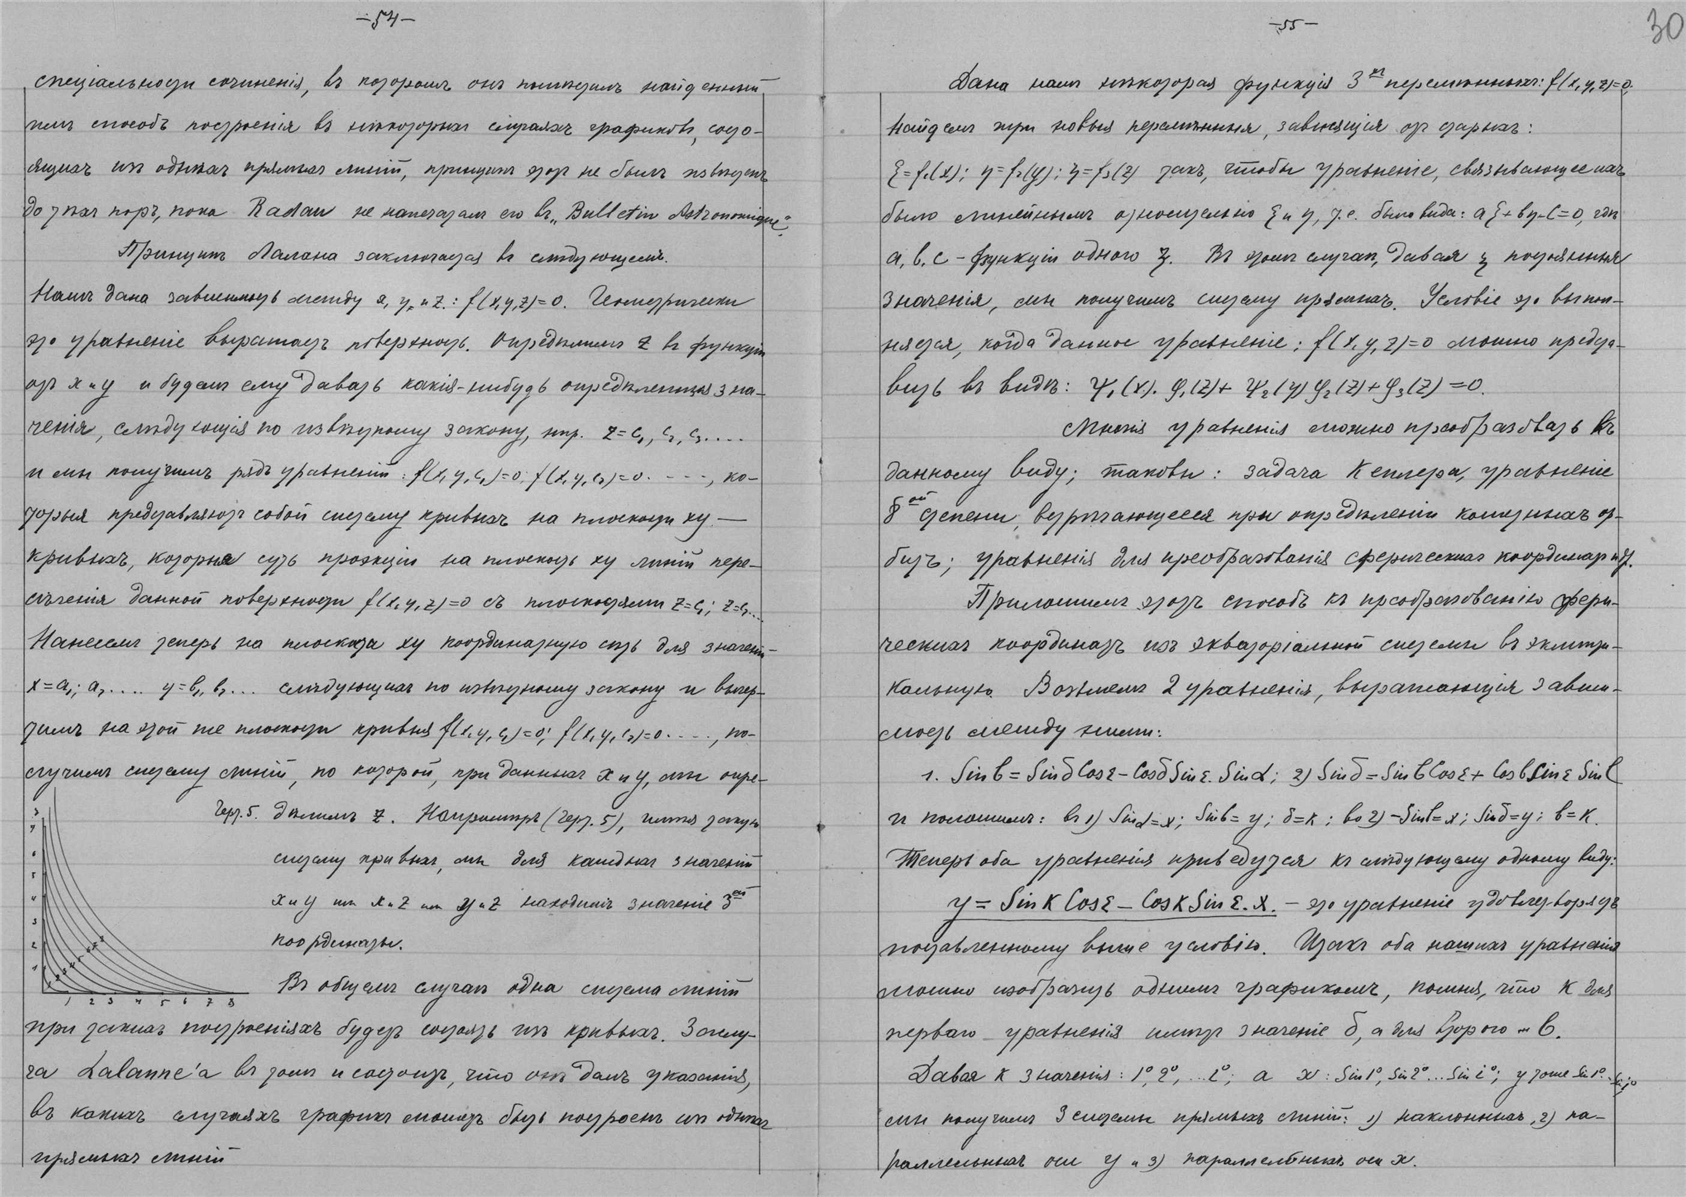 —54—
спеціальности сочиненія, въ которомъ онъ помѣстилъ найденный
имъ способъ построенія въ нѣкоторыхъ случаяхъ графиковъ, состо-
ящихъ изъ однѣхъ прямыхъ линій, принципъ этотъ не былъ извѣстенъ
до тѣхъ поръ, пока Radau не напечаталъ его въ „Bulletin Astronomique".
Принципъ Лалана заключается въ слѣдующемъ.
Намъ дана зависимость между x, y и z: f(x,y,z)=0. Геометрически
это уравненіе выражаетъ поверхность. Опредѣлимъ z въ функціи
отъ x и y и будемъ ему давать какія-нибудь опредѣленныя зна-
ченія, слѣдующія по извѣстному закону, нпр. z=c₁, c₂, c₃....
и мы получимъ рядъ уравненій: f(x,y,c₁)=0; f(x,y,c₂)=0.----, ко-
торыя представляютъ собой систему кривыхъ на плоскости xy —
кривыхъ, которыя суть проэкціи на плоскость xy линій пере-
сѣченія данной поверхности f(x,y,z)=0 съ плоскостями z=c₁; z=c₂...
Нанесемъ теперь на плоскость xy координатную сѣть для значеній
x=a₁; a₂.... y=b₁, b₂... слѣдующихъ по извѣстному закону и вычер-
тимъ на этой же плоскости кривыя f(x,y,c₁)=0; f(x,y,c₂)=0...., по-
лучимъ систему линій, по которой, при данныхъ x и y, мы опре-
Черт. 5. дѣлимъ z. Напримѣръ (Черт. 5), имѣя такую
систему кривыхъ, мы для каждыхъ значеній
x и y или x и z или y и z находимъ значеніе 3ей
координаты.
Въ общемъ случаѣ одна система линій
1 2 3 4 5 6 7 8
при такихъ построеніяхъ будетъ состоять изъ кривыхъ. Заслу-
га Lalanne'а въ томъ и состоитъ, что онъ далъ указанія,
въ какихъ случаяхъ графикъ можетъ быть построенъ изъ однѣхъ
прямыхъ линій
—55—
30
Дана намъ нѣкоторая функція 3хъ перемѣнныхъ: f(x,y,z)=0.
Найдемъ три новыя перемѣнныя, зависящія отъ старыхъ:
ξ=f₁(x); η=f₂(y); ζ=f₃(z) такъ, чтобы уравненіе, связывающее ихъ
было линейнымъ относительно ξ и η, т.е. было вида: aξ+bη-c=0, гдѣ
a, b, c - функціи одного ζ. Въ этомъ случаѣ, давая ζ постоянныя
значенія, мы получимъ систему прямыхъ. Условіе это выпол-
няется, когда данное уравненіе: f(x,y,z)=0 можно предста-
вить въ видѣ: ψ₁(x).φ₁(z)+ψ₂(y)φ₂(z)+φ₃(z)=0.
Многія уравненія можно преобразовать къ
данному виду; таковы: задача Кеплера, уравненіе
8ой степени, встрѣчающееся при опредѣленіи кометныхъ ор-
битъ; уравненія для преобразованія сферическихъ координатъ и др.
Приложимъ этотъ способъ къ преобразованію сфери-
ческихъ координатъ изъ экваторіальной системы въ эклипти-
кальную. Возьмемъ 2 уравненія, выражающія зависи-
мость между ними:
1. Sin b = Sin δ Cos ε - Cos δ Sin ε. Sin α; 2) Sin δ = Sin b Cos ε + Cos b Sin ε Sin l
и положимъ: въ 1) Sin α = x; Sin b = y; δ = K; во 2) -Sin l = x; Sin δ = y; b = K.
Теперь оба уравненія приведутся къ слѣдующему одному виду:
y = Sin K Cos ε - Cos K Sin ε. x. - это уравненіе удовлетворяетъ
поставленному выше условію. Итакъ оба нашихъ уравненія
можно изобразить однимъ графикомъ, помня, что K для
перваго уравненія имѣетъ значеніе δ, а для второго - b.
Давая K значенія: 1°, 2°, ... i°; а x: Sin 1°, Sin 2° ... Sin i°; y тоже Sin 1° .. Sin i°
мы получимъ 3 системы прямыхъ линій: 1) наклонныхъ, 2) па-
раллельныхъ оси y и 3) параллельныхъ оси x.